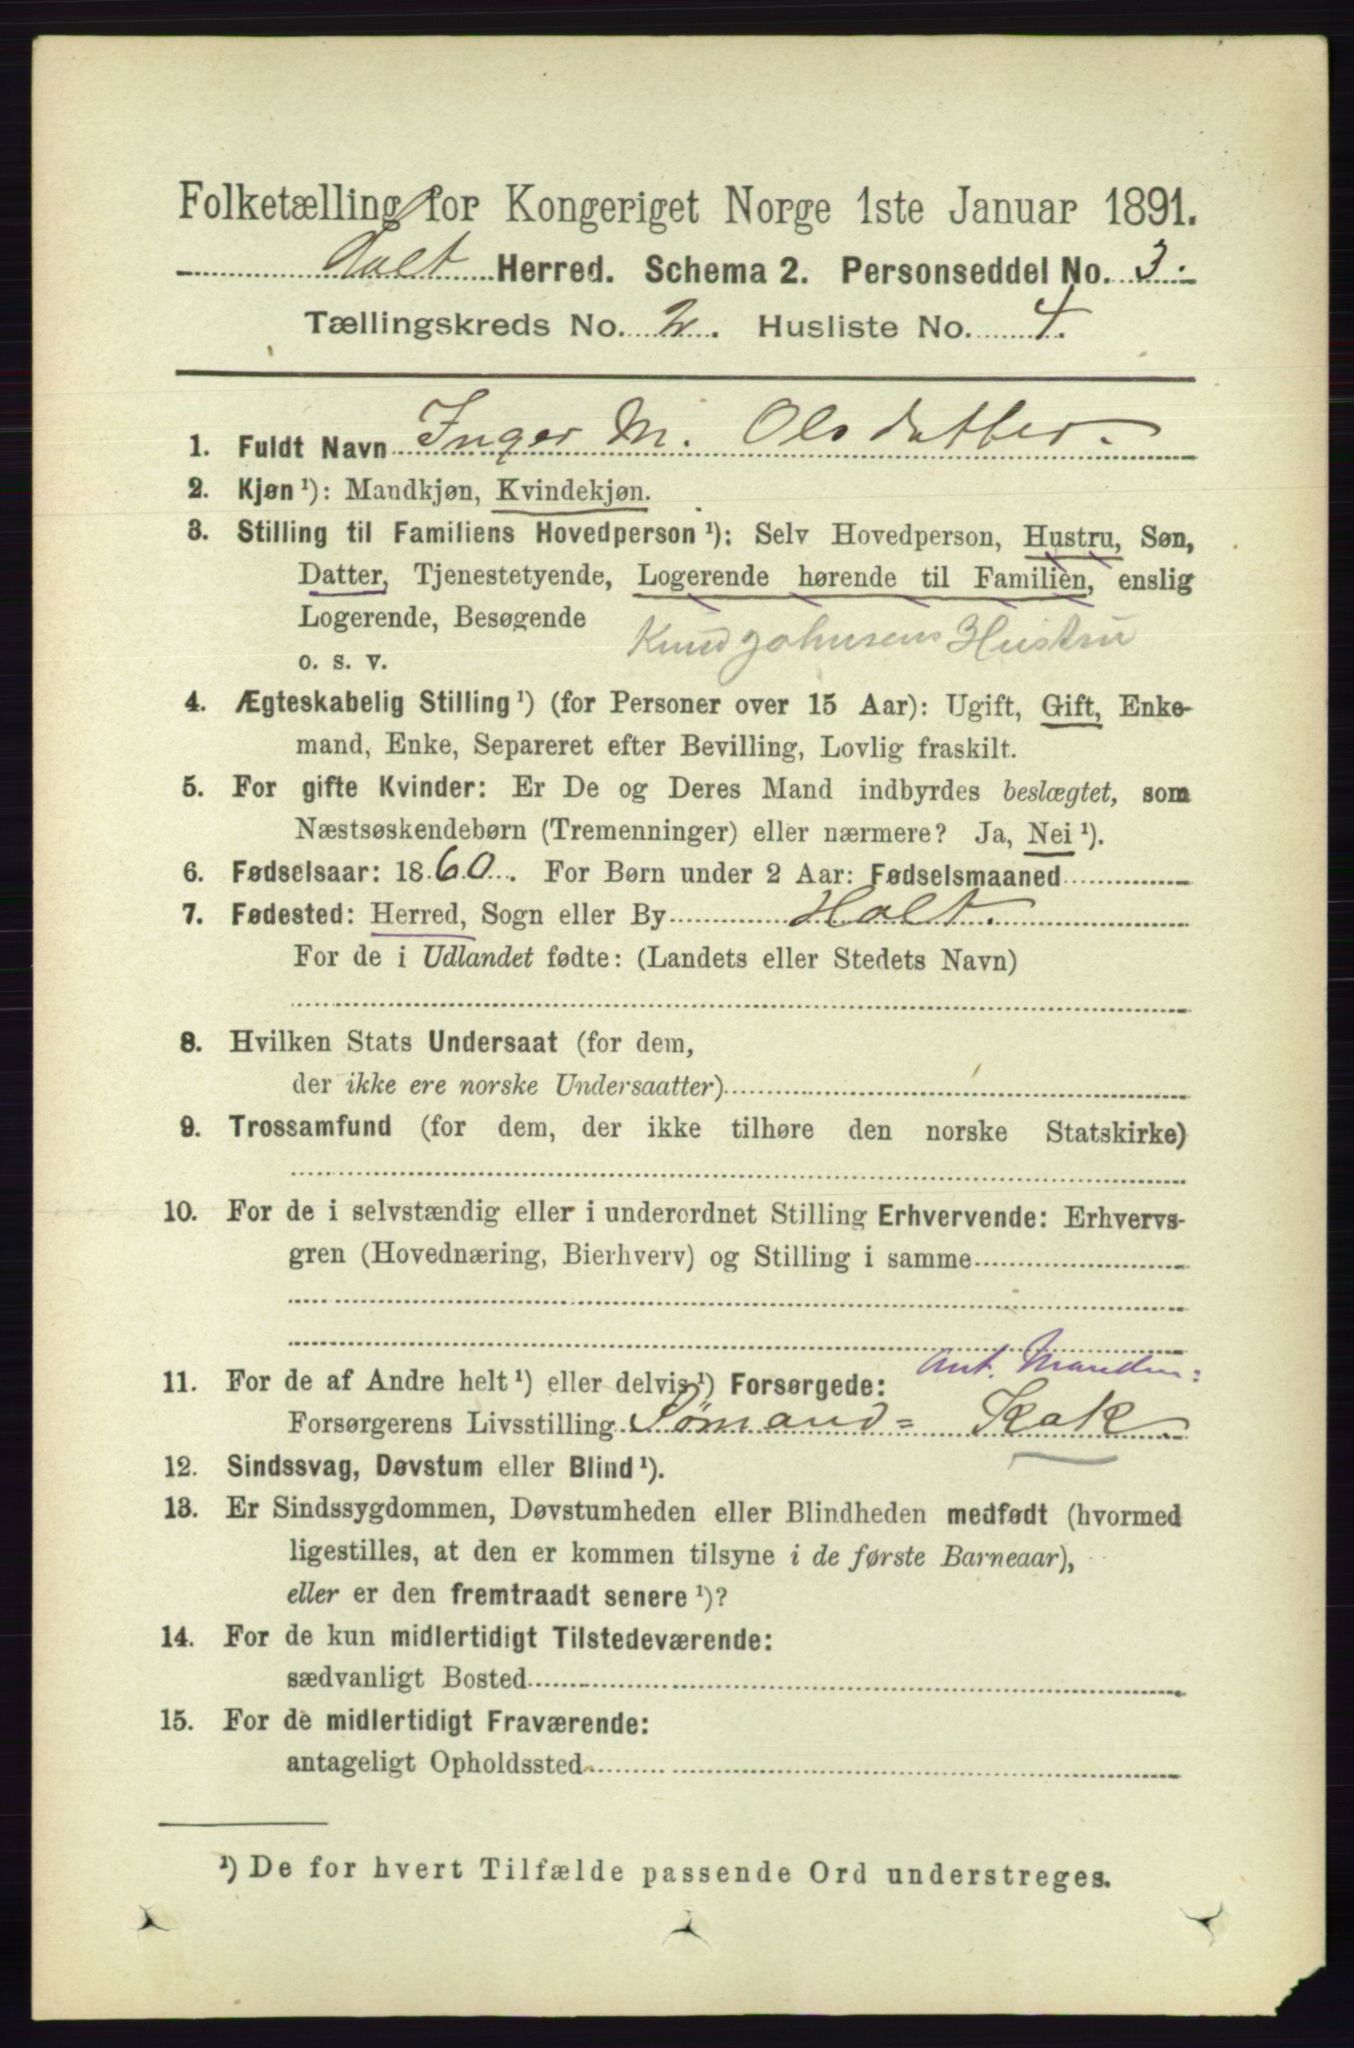 Folketælling for Kongeriget Norge 1ste Januar 1891.
Holt Herred. Schema 2. Personseddel No. 3.
Tællingskreds No. 2. Husliste No. 4.
1. Fuldt Navn Inger M. Olsdatter.
2. Kjøn ¹): Mandkjøn, Kvindekjøn.
3. Stilling til Familiens Hovedperson ¹): Selv Hovedperson, Hustru, Søn,
Datter, Tjenestetyende, Logerende hørende til Familien, enslig
Logerende, Besøgende
Knud Johnsens Hustru
o. s. v.
4. Ægteskabelig Stilling ¹) (for Personer over 15 Aar): Ugift, Gift, Enke-
mand, Enke, Separeret efter Bevilling, Lovlig fraskilt.
5. For gifte Kvinder: Er De og Deres Mand indbyrdes beslægtet, som
Næstsøskendebørn (Tremenninger) eller nærmere? Ja, Nei ¹).
6. Fødselsaar: 1860. For Børn under 2 Aar: Fødselsmaaned
7. Fødested: Herred, Sogn eller By Holt.
For de i Udlandet fødte: (Landets eller Stedets Navn)
8. Hvilken Stats Undersaat (for dem,
der ikke ere norske Undersaatter)
9. Trossamfund (for dem, der ikke tilhøre den norske Statskirke)
10. For de i selvstændig eller i underordnet Stilling Erhvervende: Erhvervs-
gren (Hovednæring, Bierhverv) og Stilling i samme
Ant. Manden:
11. For de af Andre helt ¹) eller delvis ¹) Forsørgede:
Forsørgerens Livsstilling Sømand = Kok
12. Sindssvag, Døvstum eller Blind ¹).
13. Er Sindssygdommen, Døvstumheden eller Blindheden medfødt (hvormed
ligestilles, at den er kommen tilsyne i de første Barneaar),
eller er den fremtraadt senere ¹)?
14. For de kun midlertidigt Tilstedeværende:
sædvanligt Bosted
15. For de midlertidigt Fraværende:
antageligt Opholdssted
¹) De for hvert Tilfælde passende Ord understreges.